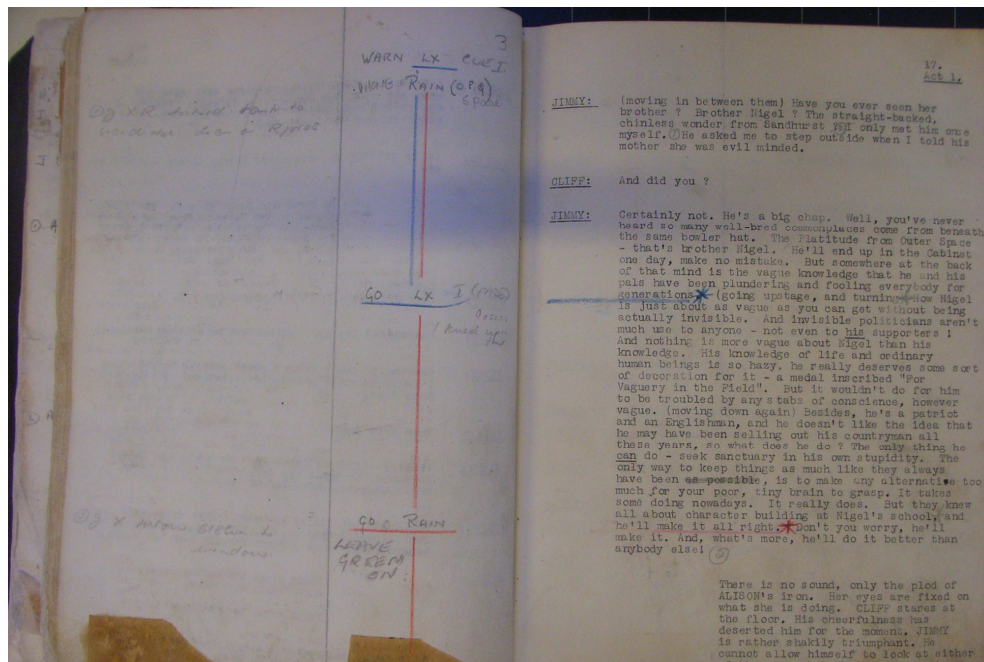 3
WARN LX CUE I
RAIN
GO LX I
GO RAIN
LEAVE
GREEN
ON.
window
17.
Act 1.
JIMMY: (moving in between them) Have you ever seen her
brother ? Brother Nigel ? The straight-backed,
chinless wonder from Sandhurst ? I only met him once
myself. He asked me to step outside when I told his
mother she was evil minded.
CLIFF: And did you ?
JIMMY: Certainly not. He's a big chap. Well, you've never
heard so many well-bred commonplaces come from beneath
the same bowler hat. The Platitude from Outer Space
- that's brother Nigel. He'll end up in the Cabinet
one day, make no mistake. But somewhere at the back
of that mind is the vague knowledge that he and his
pals have been plundering and fooling everybody for
generations (going upstage, and turning How Nigel
is just about as vague as you can get without being
actually invisible. And invisible politicians aren't
much use to anyone - not even to his supporters !
And nothing is more vague about Nigel than his
knowledge. His knowledge of life and ordinary
human beings is so hazy, he really deserves some sort
of decoration for it - a medal inscribed "For
Vaguery in the Field". But it wouldn't do for him
to be troubled by any stabs of conscience, however
vague. (moving down again) Besides, he's a patriot
and an Englishman, and he doesn't like the idea that
he may have been selling out his countryman all
these years, so what does he do ? The only thing he
can do - seek sanctuary in his own stupidity. The
only way to keep things as much like they always
have been as possible, is to make any alternative too
much for your poor, tiny brain to grasp. It takes
some doing nowadays. It really does. But they knew
all about character building at Nigel's school, and
he'll make it all right. Don't you worry, he'll
make it. And, what's more, he'll do it better than
anybody else!
There is no sound, only the plod of
ALISON's iron. Her eyes are fixed on
what she is doing. CLIFF stares at
the floor. His cheerfulness has
deserted him for the moment. JIMMY
is rather shakily triumphant. He
cannot allow himself to look at either